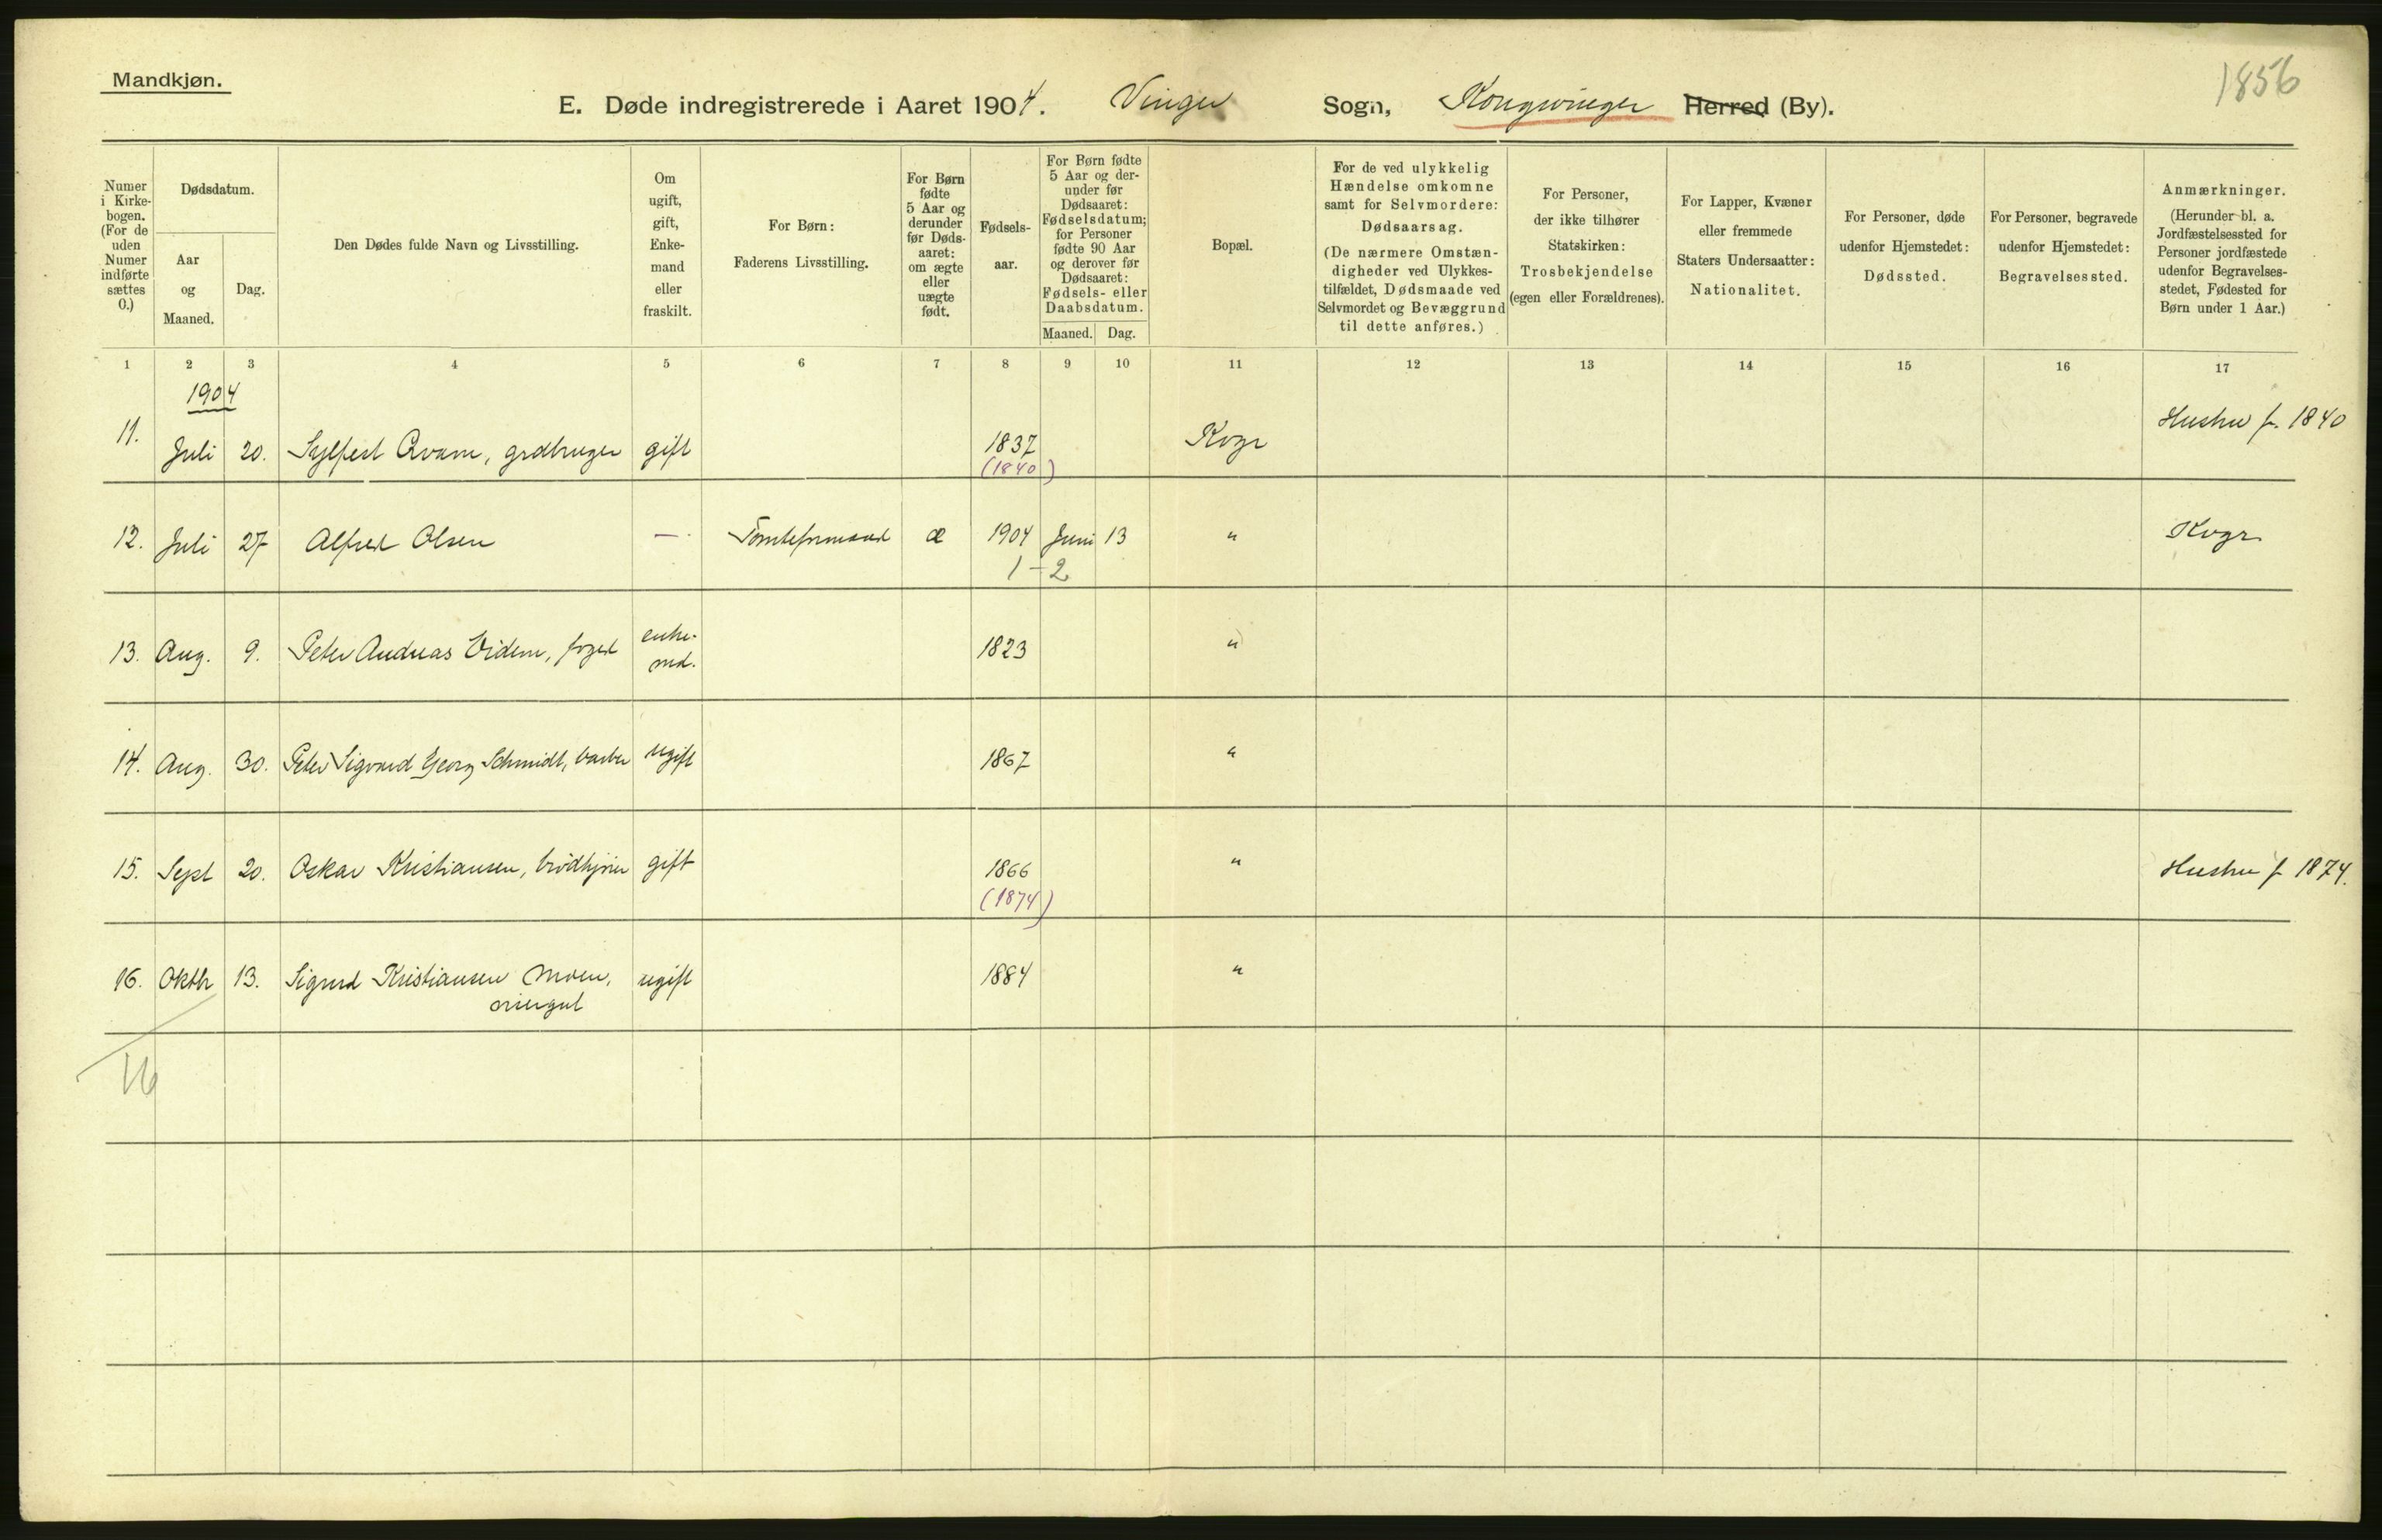 Mandkjøn.
1856
E. Døde indregistrerede i Aaret 1904. Vinger Sogn, Kongsvinger Herred (By).
Numer i Kirkebogen. (For de uden Numer indførte sættes 0.)
Dødsdatum.
Aar og Maaned.
Dag.
Den Dødes fulde Navn og Livsstilling.
Om ugift, gift, Enkemand eller fraskilt.
For Børn: Faderens Livsstilling.
For Børn fødte 5 Aar og derunder før Dødsaaret: om ægte eller uægte født.
Fødselsaar.
For Børn fødte 5 Aar og derunder før Dødsaaret: Fødselsdatum; for Personer fødte 90 Aar og derover før Dødsaaret: Fødsels- eller Daabsdatum.
Maaned. Dag.
Bopæl.
For de ved ulykkelig Hændelse omkomne samt for Selvmordere: Dødsaarsag. (De nærmere Omstændigheder ved Ulykkestilfældet, Dødsmaade ved Selvmordet og Bevæggrund til dette anføres.)
For Personer, der ikke tilhører Statskirken: Trosbekjendelse (egen eller Forældrenes).
For Lapper, Kvæner eller fremmede Staters Undersaatter: Nationalitet.
For Personer, døde udenfor Hjemstedet: Dødssted.
For Personer, begravede udenfor Hjemstedet: Begravelsessted.
Anmærkninger. (Herunder bl. a. Jordfæstelsessted for Personer jordfæstede udenfor Begravelsesstedet, Fødested for Børn under 1 Aar.)
1 2 3 4 5 6 7 8 9 10 11 12 13 14 15 16 17
1904
11. Juli 20. Sylfest Qvam, grdbruger gift 1837 Kvgr Hustru f. 1840
(1840)
12. Juli 27 Alfred Olsen — Tomteformand æ 1904 Juni 13 " Kvgr.
1-2
13. Aug. 9. Peter Andreas Videm, foged enke- 1823 "
md.
14. Aug. 30. Peter Sigvard Georg Schmidt, barber ugift 1867 "
15. Sept 20. Oskar Kristiansen, brødkjører gift 1866 " Hustru f 1874.
(1874)
16. Oktbr 13. Sigurd Kristiansen Moen, ugift 1884 "
16